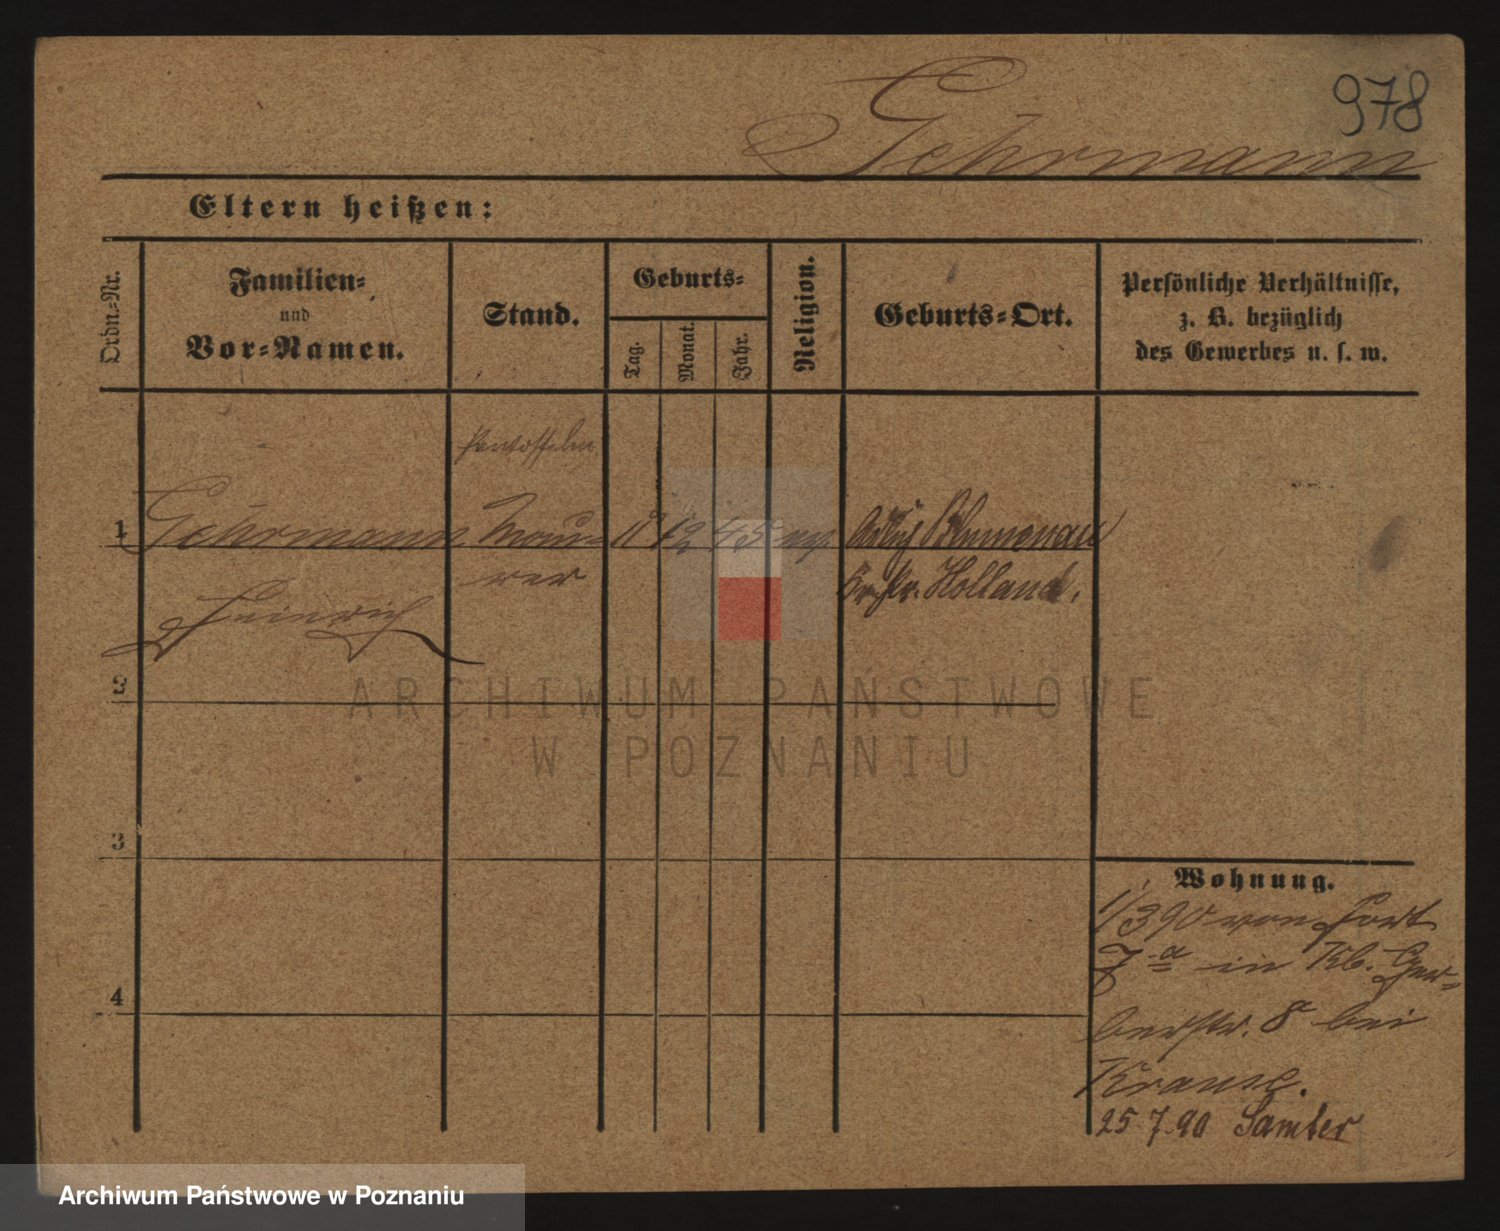 978
Gehrmann
Eltern heißen:
Ordn.-Nr.
Familien-
und
Vor-Namen.
Stand.
Geburts-
Tag.
Monat.
Jahr.
Religion.
Geburts-Ort.
Persönliche Verhältnisse,
z. B. bezüglich
des Gewerbes u. s. w.
1 Gehrmann Mau- 12 45 Blumenau
Heinrich rer Kr. Pr. Holland.
2
3
4
ARCHIWUM PAŃSTWOWE
W POZNANIU
Wohnung.
1/3 90 von Fort
7a in Kb. Ger-
berstr. 8 bei
Krause.
25.7.90 Samter
Archiwum Państwowe w Poznaniu